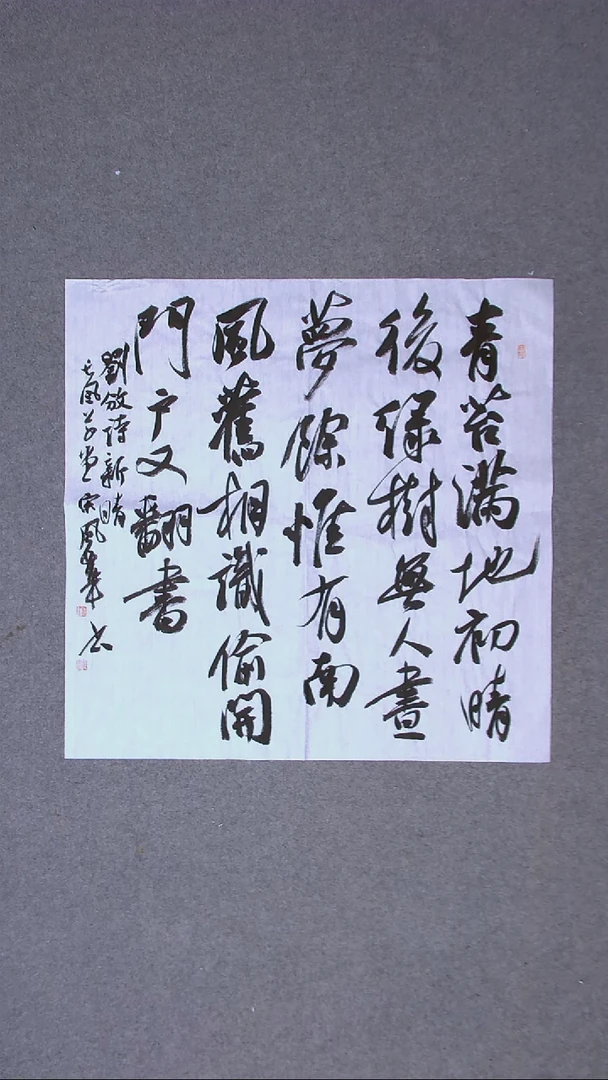 青苔滿地初晴
後綠樹無人晝
夢餘惟有南
風舊相識偷開
門户又翻書
劉攽詩新晴
風草堂宋風華書